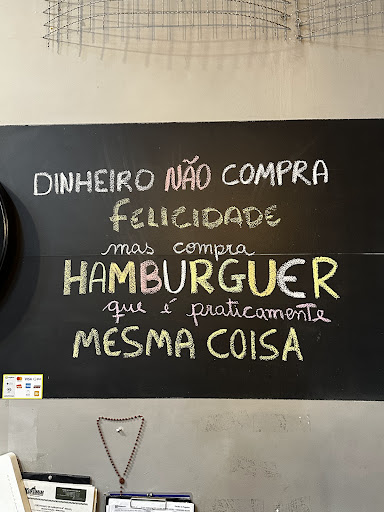 DINHEIRO NÃO COMPRA
FELICIDADE
mas compra
HAMBURGUER
que é praticamente
MESMA COISA